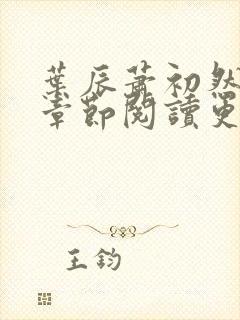 葉辰蕭初然
章節閱讀更
王鈞